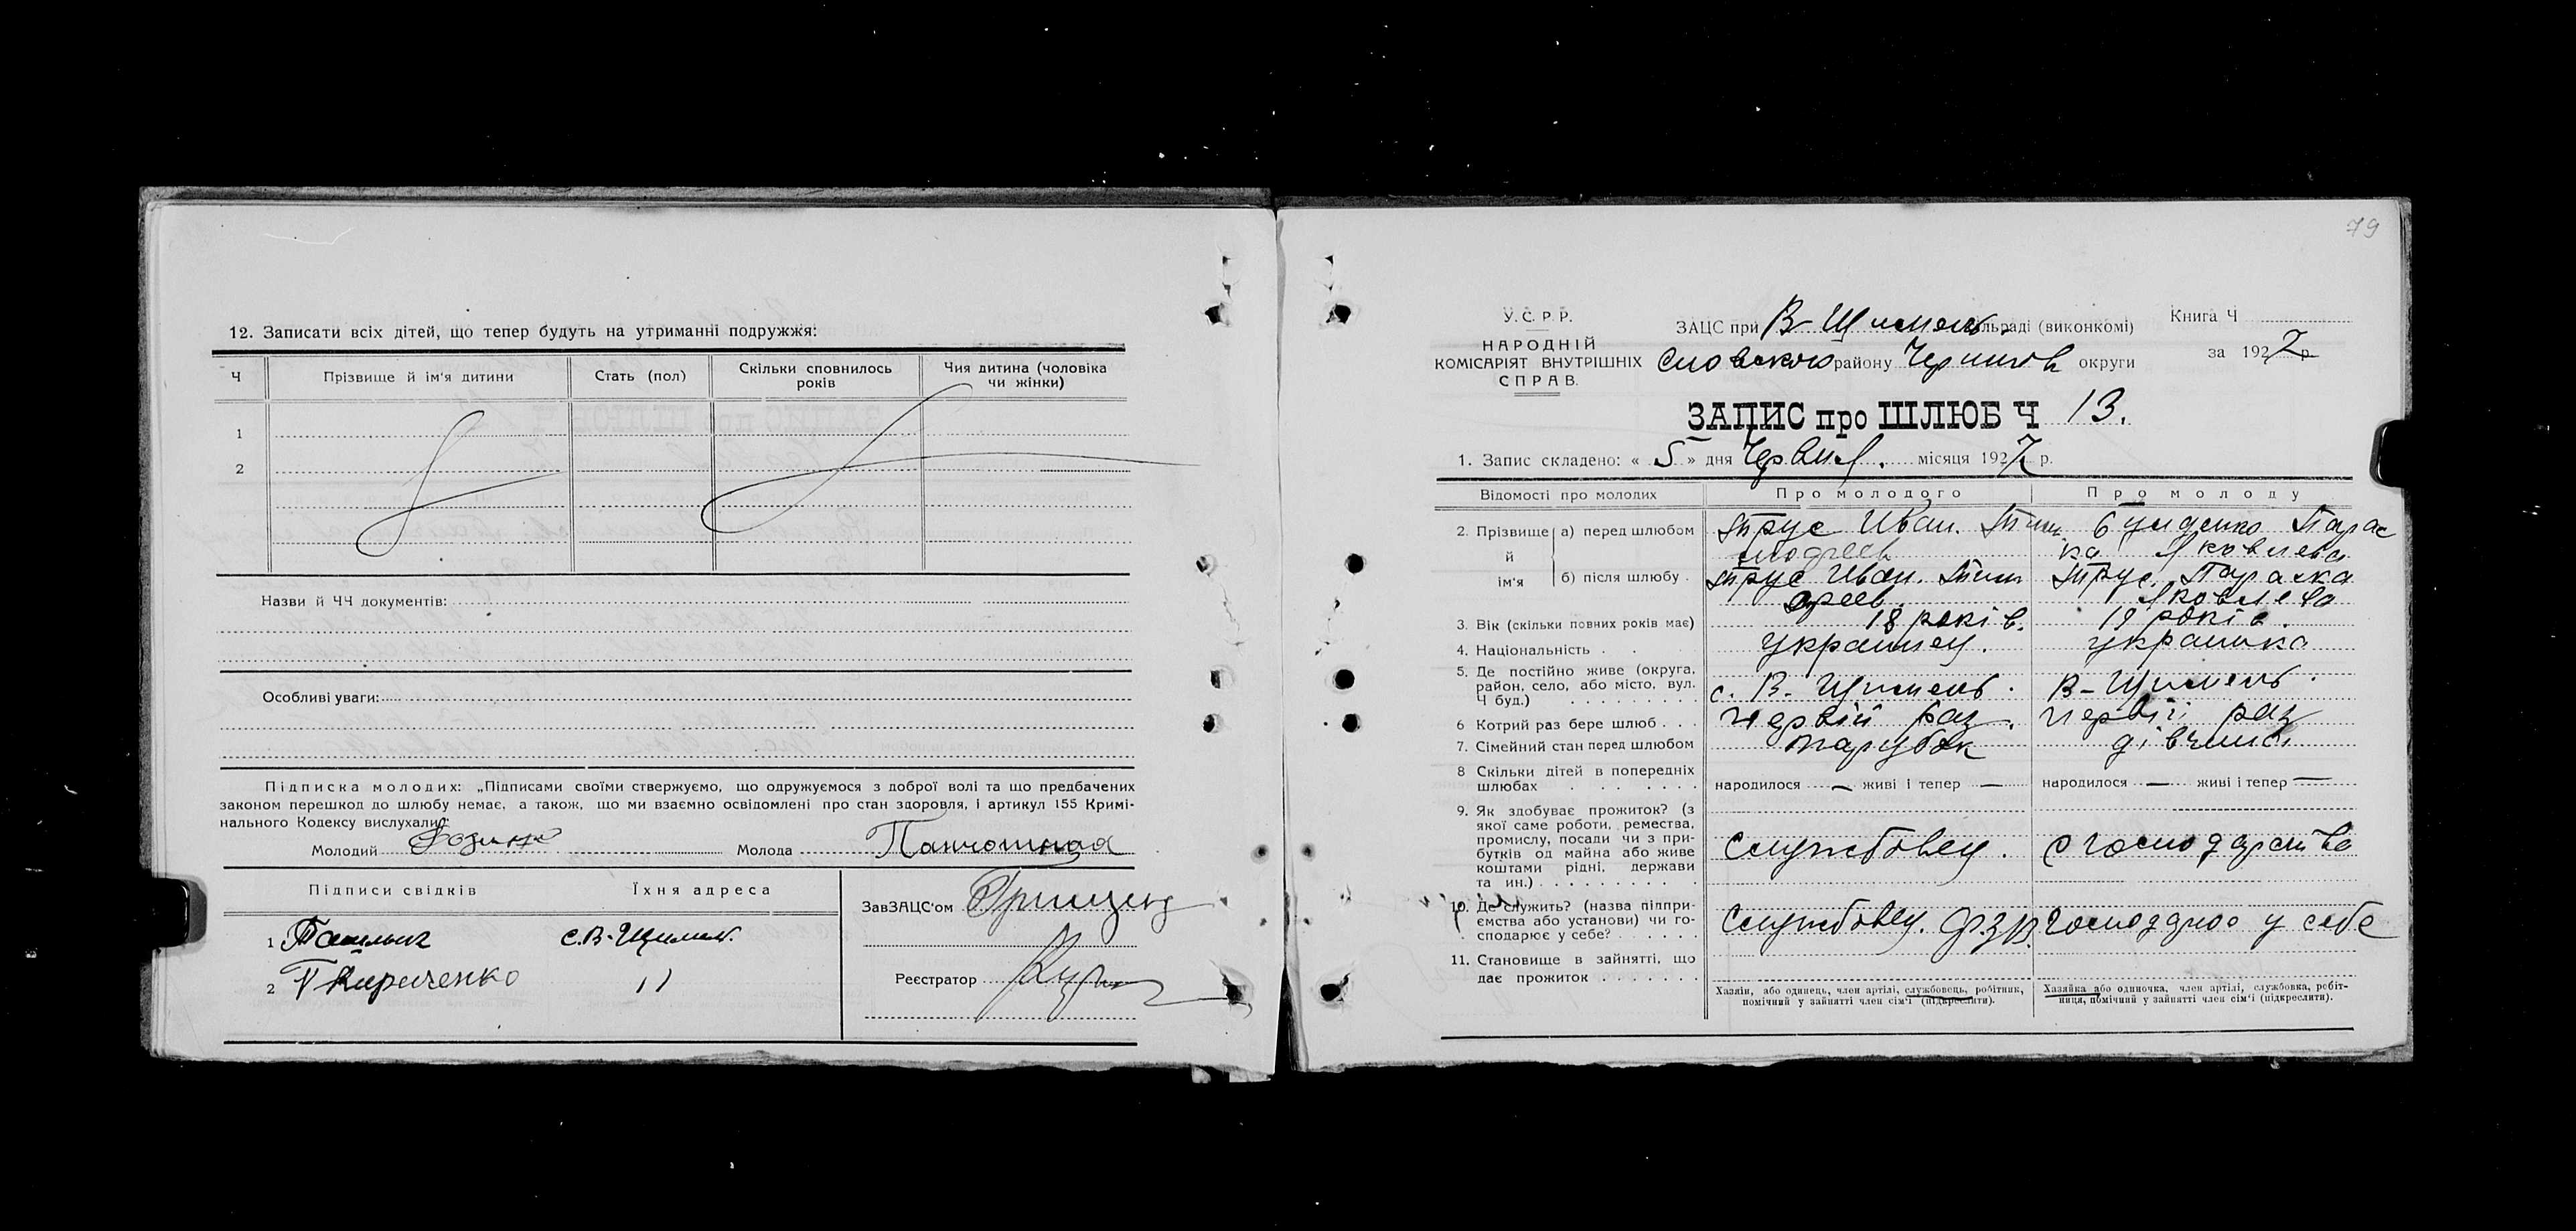 12. Записати всіх дітей, що тепер будуть на утриманні подружжя:
Ч
Прізвище й ім'я дитини
Стать (пол)
Скільки сповнилось років
Чия дитина (чоловіка чи жінки)
1
2
Назви й ЧЧ документів:
Особливі уваги:
Підписка молодих: „Підписами своїми ствержуємо, що одружуємося з доброї волі та що предбачених
законом перешкод до шлюбу немає, а також, що ми взаємно освідомлені про стан здоровля, і артикул 155 Кримі-
нального Кодексу вислухали".
Молодий
Молода
Підписи свідків
Їхня адреса
1
с. В-Щимел.
2 Кириченко
11
ЗавЗАЦС'ом Грищенко
Реєстратор
79
У.С.Р.Р.
НАРОДНІЙ
КОМІСАРІЯТ ВНУТРІШНІХ
СПРАВ.
ЗАЦС при В-Щимель сільраді (виконкомі)
Сновского району Чернигов округи
Книга Ч
за 1927 р.
ЗАПИС про ШЛЮБ Ч 13.
1. Запис складено: « 5 » дня Червня. місяця 1927 р.
Відомості про молодих
Про молодого
Про молоду
2. Прізвище й ім'я
а) перед шлюбом
Трус Иван. Тим
Парас
ка Яковлева
б) після шлюбу
Трус Иван. Тим
Трус. Параска
Яковлева
3. Вік (скільки повних років має)
18 років.
19 років.
4. Національність
Украинец.
Украинка
5. Де постійно живе (округа, район, село, або місто, вул. Ч буд.)
с. В-Щимель.
В-Щимель.
6 Котрий раз бере шлюб
Первій раз.
Первій раз
7. Сімейний стан перед шлюбом
парубок
дівчина
8 Скільки дітей в попередніх шлюбах
народилося — живі і тепер —
народилося — живі і тепер —
9. Як здобуває прожиток? (з якої саме роботи, ремества, промислу, посади чи з прибутків од майна або живе коштами рідні, держави та ин.)
Службовец.
с господарства
10. Де служить? (назва підприємства або установи) чи господарює у себе?
Службовец.
у себе
11. Становище в зайнятті, що дає прожиток
Хазяїн, або одинець, член артілі, службовець, робітник, помічний у зайнятті член сім'ї (підкреслити).
Хазяйка або одиночка, член артілі, службовка, робітниця, помічний у зайнятті член сім'ї (підкреслити).